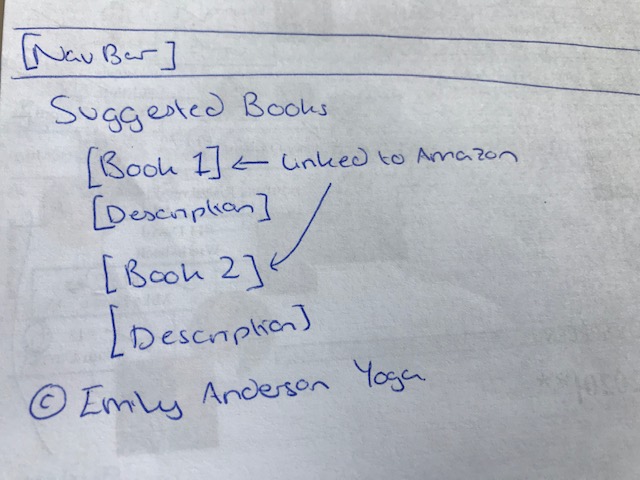 [Nav Bar]
Suggested Books
[Book 1] ← Linked to Amazon
[Description]
[Book 2]
[Description]
© Emily Anderson Yoga